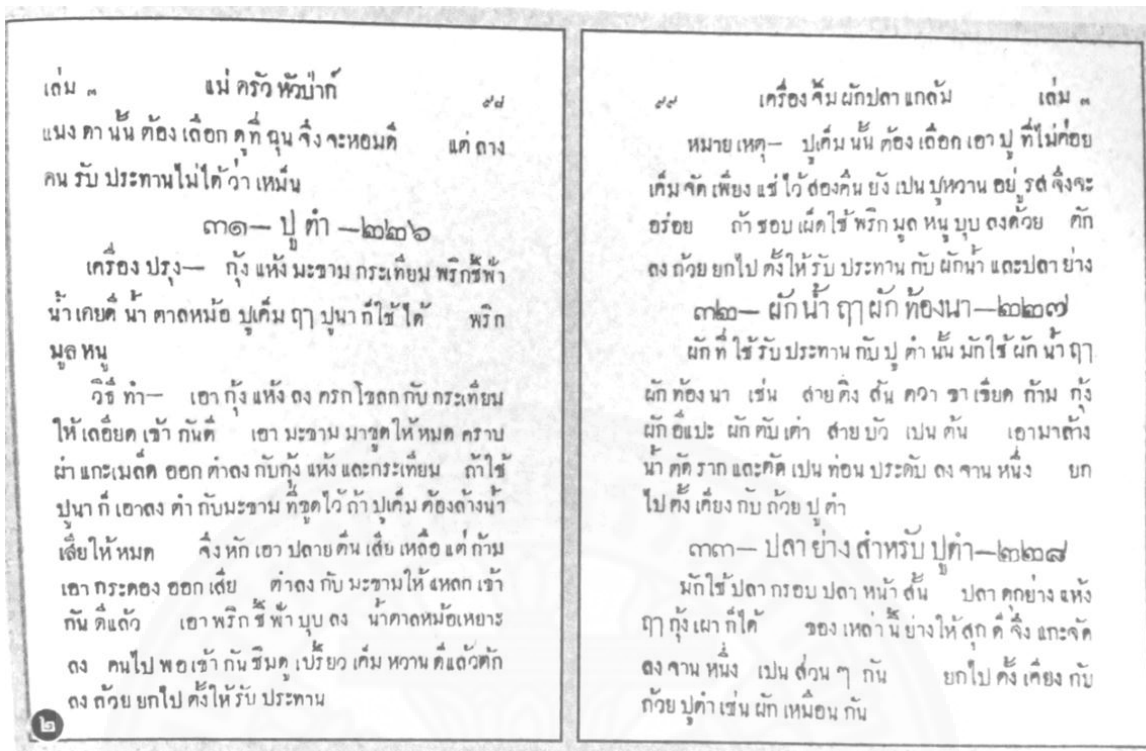 เล่ม ๓ แม่ ครัว หัวป่าก์ ๙๘
แมง ดา นั้น ต้อง เลือก ดู ที่ ฉุน จึง จะ หอม ดี แต่ ลาง
คน รับ ประทาน ไม่ ได้ ว่า เหม็น
๓๑— ปู ตำ —๒๒๖
เครื่อง ปรุง— กุ้ง แห้ง มะขาม กระเทียม พริกชี้ฟ้า
น้ำ เคยดี น้ำ ตาลหม้อ ปูเค็ม ฤๅ ปูนา ก็ ใช้ ได้ พริก
มูล หนู
วิธี ทำ— เอา กุ้ง แห้ง ลง ครก โขลก กับ กระเทียม
ให้ เลอียด เข้า กันดี เอา มะขาม มา ขูด ให้ หมด คราบ
ผ่า แกะเมล็ด ออก ตำลง กับกุ้ง แห้ง และกระเทียม ถ้าใช้
ปูนา ก็ เอาลง ตำ กับมะขาม ที่ขูดไว้ ถ้า ปูเค็ม ต้องล้างน้ำ
เสีย ให้ หมด จึง หัก เอา ปลาย ตีน เสีย เหลือ แต่ ก้าม
เอา กระดอง ออก เสีย ตำลง กับ มะขาม ให้ แหลก เข้า
กัน ดีแล้ว เอา พริก ชี้ ฟ้า บุบ ลง น้ำตาลหม้อเหยาะ
ลง คนไป พอ เข้า กัน ชิมดู เปรี้ยว เค็ม หวาน ดีแล้วตัก
ลง ถ้วย ยก ไป ตั้ง ให้ รับ ประทาน
๒
๙๙ เครื่อง จิ้ม ผักปลา แกล้ม เล่ม ๓
หมาย เหตุ— ปูเค็ม นั้น ต้อง เลือก เอา ปู ที่ ไม่ค่อย
เค็ม จัด เพียง แช่ ไว้ สองคืน ยัง เปน ปูหวาน อยู่ รส จึงจะ
อร่อย ถ้า ชอบ เผ็ด ใช้ พริก มูล หนู บุบ ลงด้วย ตัก
ลง ถ้วย ยก ไป ตั้ง ให้ รับ ประทาน กับ ผักน้ำ และปลา ย่าง
๓๒— ผัก น้ำ ฤๅ ผัก ท้องนา—๒๒๗
ผัก ที่ ใช้ รับ ประทาน กับ ปู ตำ นั้น มักใช้ ผัก น้ำ ฤๅ
ผัก ท้อง นา เช่น สาย ติ่ง สัน ตวา ขา เขียด ก้าม กุ้ง
ผัก อีแปะ ผัก ตับ เต่า สาย บัว เปน ต้น เอามา ล้าง
น้ำ ตัด ราก และตัด เปน ท่อน ประดับ ลง จาน หนึ่ง ยก
ไป ตั้ง เคียง กับ ถ้วย ปู ตำ
๓๓— ปลา ย่าง สำหรับ ปูตำ—๒๒๘
มักใช้ ปลา กรอบ ปลา หน้า สั้น ปลา ดุกย่าง แห้ง
ฤๅ กุ้ง เผา ก็ได้ ของ เหล่า นี้ ย่าง ให้ สุก ดี จึง แกะจัด
ลง จาน หนึ่ง เปน ส่วน ๆ กัน ยกไป ตั้ง เคียง กับ
ถ้วย ปูตำ เช่น ผัก เหมือน กัน